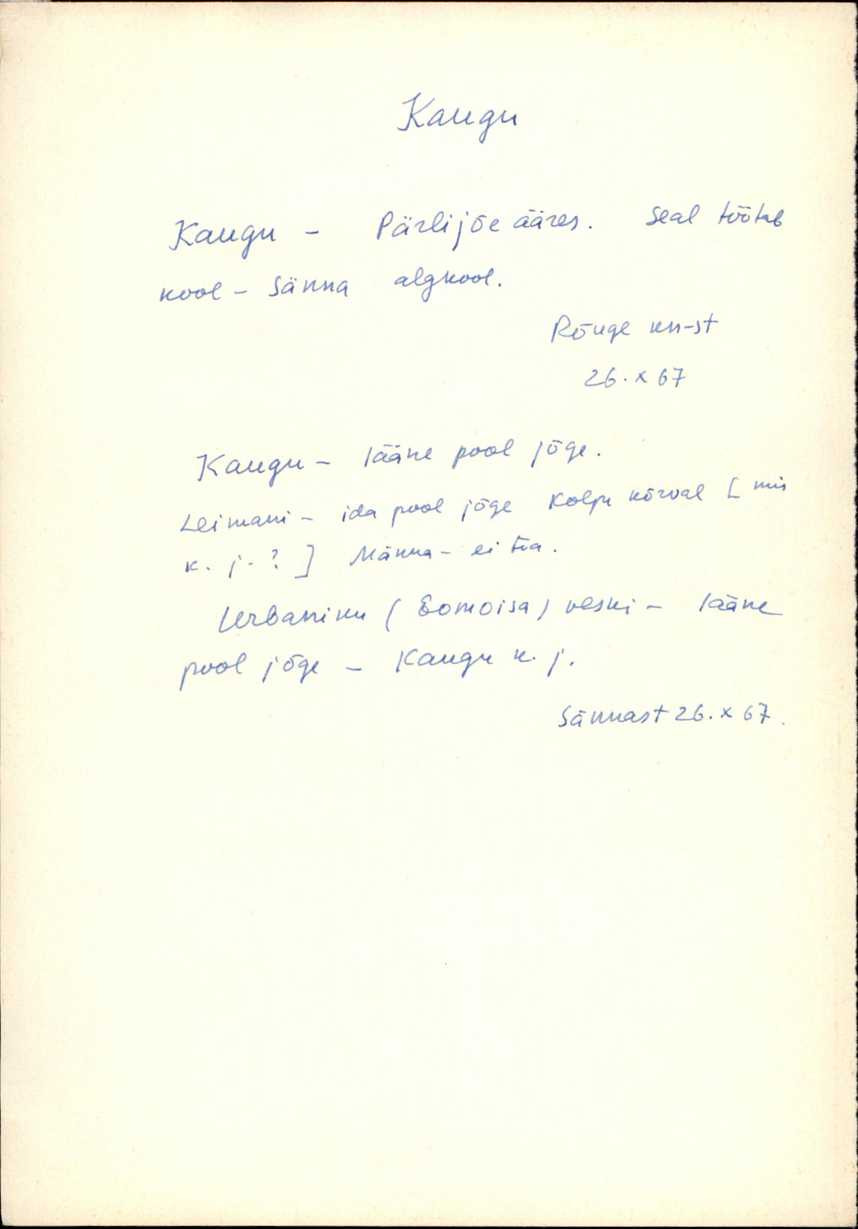 Kaugu
Kaugu – Pärlijõe ääres. Seal töötab
kool – Sänna algkool.
Rõuge kn-st
26. x 67
Kaugu – lääne pool jõge.
Leimani – ida pool jõge Kolpu kõrval [ mis
k. j. ? ] Männa – ei tea.
Urbaniku ( Somoisa ) veski – lääne
pool jõge – Kaugu k. j.
Sännast 26. x 67.